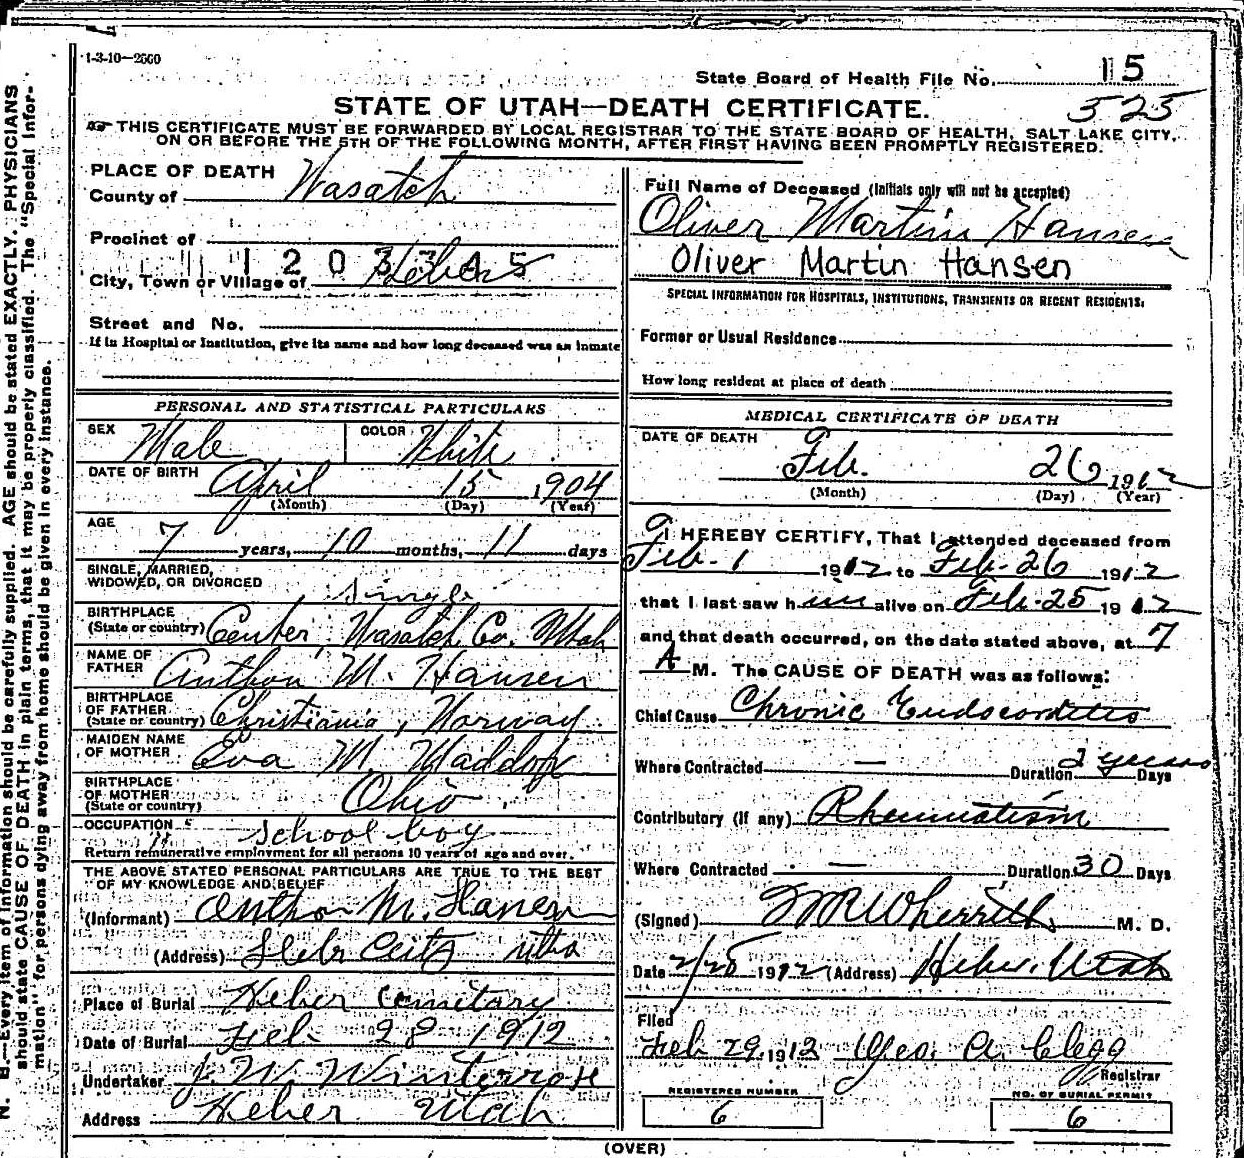 1-3-10—2500
State Board of Health File No. 15
525
STATE OF UTAH—DEATH CERTIFICATE.
THIS CERTIFICATE MUST BE FORWARDED BY LOCAL REGISTRAR TO THE STATE BOARD OF HEALTH, SALT LAKE CITY,
ON OR BEFORE THE 5TH OF THE FOLLOWING MONTH, AFTER FIRST HAVING BEEN PROMPTLY REGISTERED.
PLACE OF DEATH
County of Wasatch
Precinct of
1203345
City, Town or Village of Heber
Street and No.
If in Hospital or Institution, give its name and how long deceased was an inmate
PERSONAL AND STATISTICAL PARTICULARS
SEX Male COLOR White
DATE OF BIRTH April 15 1904
(Month) (Day) (Year)
AGE
7 years, 10 months, 11 days
SINGLE, MARRIED,
WIDOWED, OR DIVORCED single
BIRTHPLACE
(State or country) Center, Wasatch Co. Utah
NAME OF
FATHER Anthon M. Hansen
BIRTHPLACE
OF FATHER
(State or country) Christiania, Norway
MAIDEN NAME
OF MOTHER Eva M. Maddox
BIRTHPLACE
OF MOTHER
(State or country) Ohio
OCCUPATION school boy
Return remunerative employment for all persons 10 years of age and over.
THE ABOVE STATED PERSONAL PARTICULARS ARE TRUE TO THE BEST
OF MY KNOWLEDGE AND BELIEF
(Informant) Anthon M. Hansen
(Address) Hebr Ceity utha
Place of Burial Heber Cemitary
Date of Burial Feb 28 1912
Undertaker J. W. Winterrose
Address Heber Utah
Full Name of Deceased (Initials only will not be accepted)
Oliver Martin Hansen
Oliver Martin Hansen
SPECIAL INFORMATION FOR HOSPITALS, INSTITUTIONS, TRANSIENTS OR RECENT RESIDENTS:
Former or Usual Residence
How long resident at place of death
MEDICAL CERTIFICATE OF DEATH
DATE OF DEATH
Feb. 26 1912
(Month) (Day) (Year)
I HEREBY CERTIFY, That I attended deceased from
Feb. 1 1912 to Feb. 26 1912
that I last saw him alive on Feb. 25 1912
and that death occurred, on the date stated above, at 7
A M. The CAUSE OF DEATH was as follows:
Chief Cause Chronic Endocorditis
Where Contracted — Duration 2 years Days
Contributory (if any) Rheumatism
Where Contracted — Duration 30 Days
(Signed) W R Wherritt M. D.
Date 2/28 1912 (Address) Heber, Utah
Filed
Feb 29 1912 Geo. A. Clegg
Registrar
REGISTERED NUMBER
6
NO. OF BURIAL PERMIT
6
(OVER)
N. B.—Every item of information should be carefully supplied. AGE should be stated EXACTLY. PHYSICIANS
should state CAUSE OF DEATH in plain terms, that it may be properly classified. The "Special Infor-
mation" for persons dying away from home should be given in every instance.